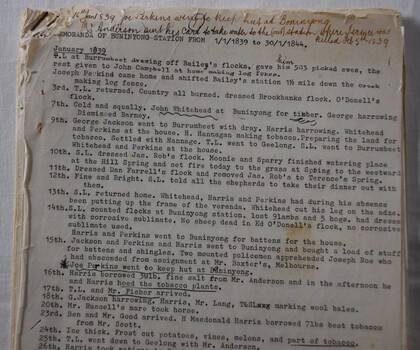 Nov 1839 Joe Perkins went to keep hut at Boninyong
Mr Anderson sent his cart to take water to the out station where Terence was killed Oct 5th 1839
MEMORANDA OF BUNINYONG STATION FROM 1/1/1839 to 30/1/1844.
January 1839
T.L at Burrumbeet drawing off Bailey's flocks, gave him 503 picked ewes, the
rest given to John Campbell at home making log fence.
Joseph Perkins came home and shifted Bailey's station 1½ mile down the creek
making log fence.
3rd. T.L. returned. Country all burned. dressed Brockhanks flock. O'Donell's
flock.
7th. Cold and squally. John Whitehead at Buninyong for timber. George harrowing
Dismissed Barney.
9th. George Jackson went to Burrumbeet with dray. Harris harrowing. Whitehead
and Perkins at the house. H. Hannagan making tobacco. Preparing the land for
tobacco. Settled with Hannage. T.L. went to Geelong. S.L. went to Burrumbeet
Whitehead and Perkins at the house.
10th. S.L. dressed Jas. Rob's flock. Moonie and Sparry finished watering place
at the Hill Spring and set fire today to the grass at Spring to the westward
11th. Dressed Dan Farrell's flock and removed Jas. Rob's to Terence's Spring.
12th. Fine and Bright. S.L. told all the shepherds to take their dinner out with
them.
13th. S.L. returned home. Whitehead, Harris and Perkins had during his absence
been putting up the frame of the veranda. Whitehead cut his leg on the adze.
14th. S.L. counted flocks at Buninyong station, lost 91ambs and 5 hogs, had dressed
with corrosive sublimate. No sheep dead in Ed O'Donell's flock, no corrosive
sublimate used.
Harris and Perkins went to Buninyong for battens for the house.
15th. Jackson and Perkins and Harris went to Buninyong and bought a load of stuff
for battens and shingles. Two mounted policemen apprehended Joseph Roe who
had absconded from assignment at Mr. Baxter's, Melbourne.
Joe Perkins went to keep hut at Buninyong.
16th. Harris borrowed 30lb. fine salt from Mr. Anderson and in the afternoon he
and Harris hoed the tobacco plants.
17th. T.L. and Mr. Fisher arrived.
18th. G.Jackson harrowing. Harris, Mr. Lang, T&SL marking wool bales.
20th. Mr. Russell's mare took horse.
23rd. Ben and Mr. Good arrived. H Macdonald Harris borrowed 71lbs best tobacco
from Mr. Scott.
24th. Ice thick. Frost cut potatoes, vines, melons, and part of tobacco.
25th. T.L. went down to Geelong with Mr. Anderson.
26th. Harris took